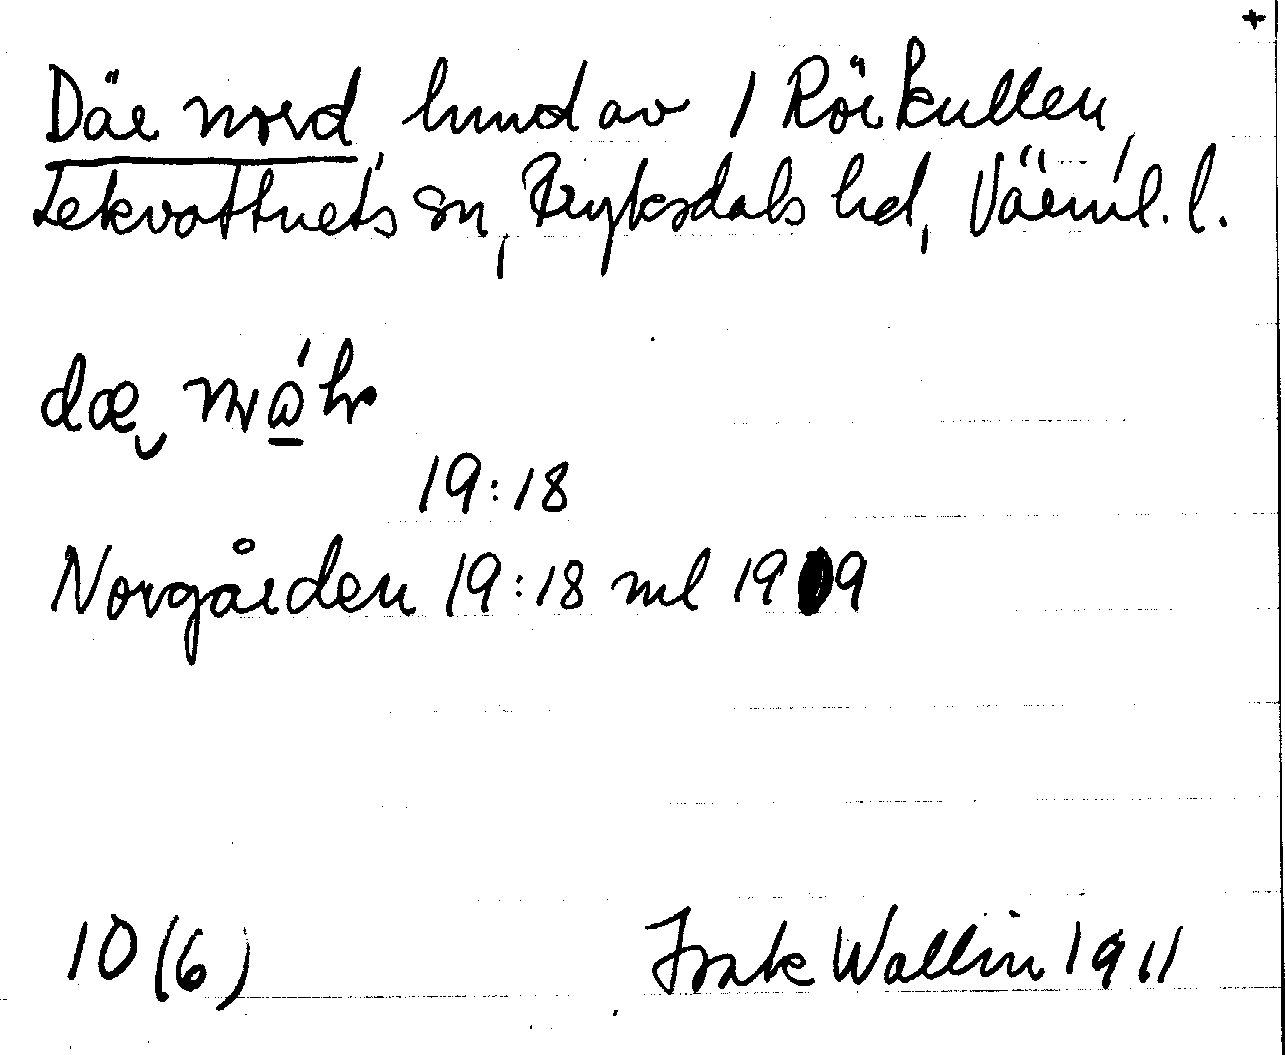 +
Där nord, hmd av 1 Rörkullen,
Lekvattnets sn, Fryksdals hd, Värml. l.
dæ
19:18
Norgården 19:18 ml 1909
10 (6) Wallin 1911